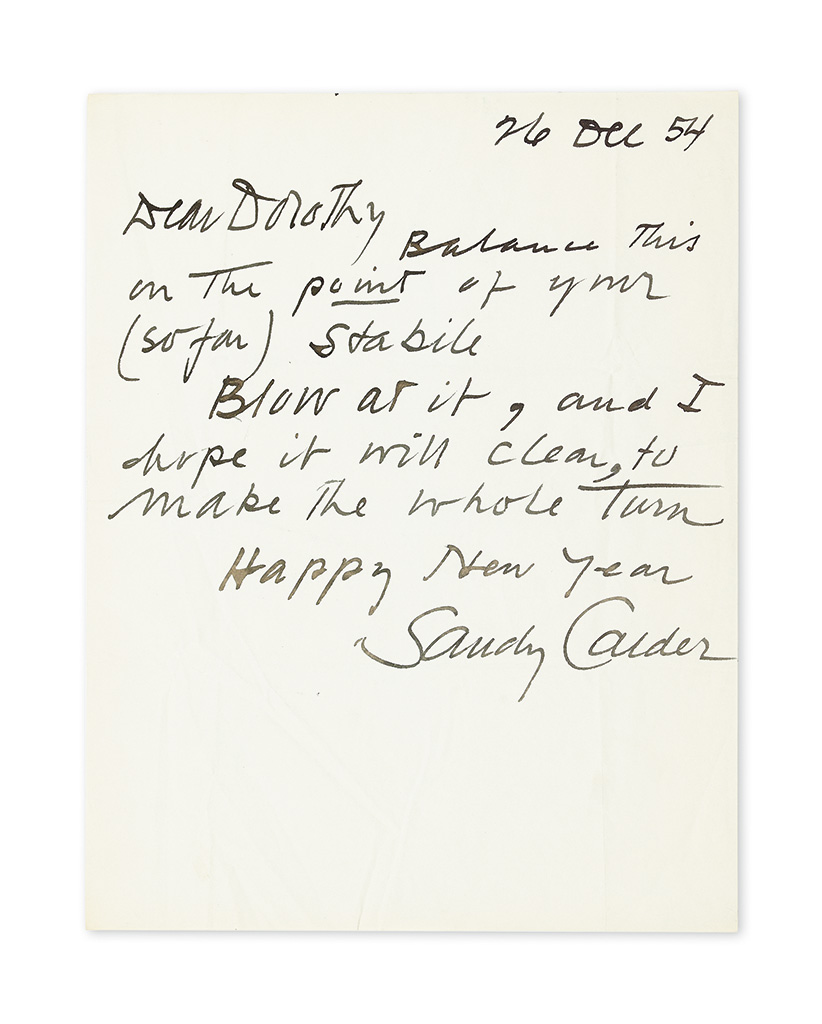 26 Dec 54
Dear Dorothy
Balance This
on The point of your
(so far) Stabile
Blow at it, and I
hope it will clear, to
make the whole Turn
Happy New Year
Sandy Calder